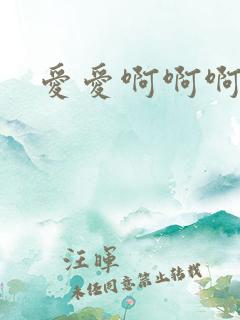 愛愛啊啊啊
汪暉
未经同意禁止转载